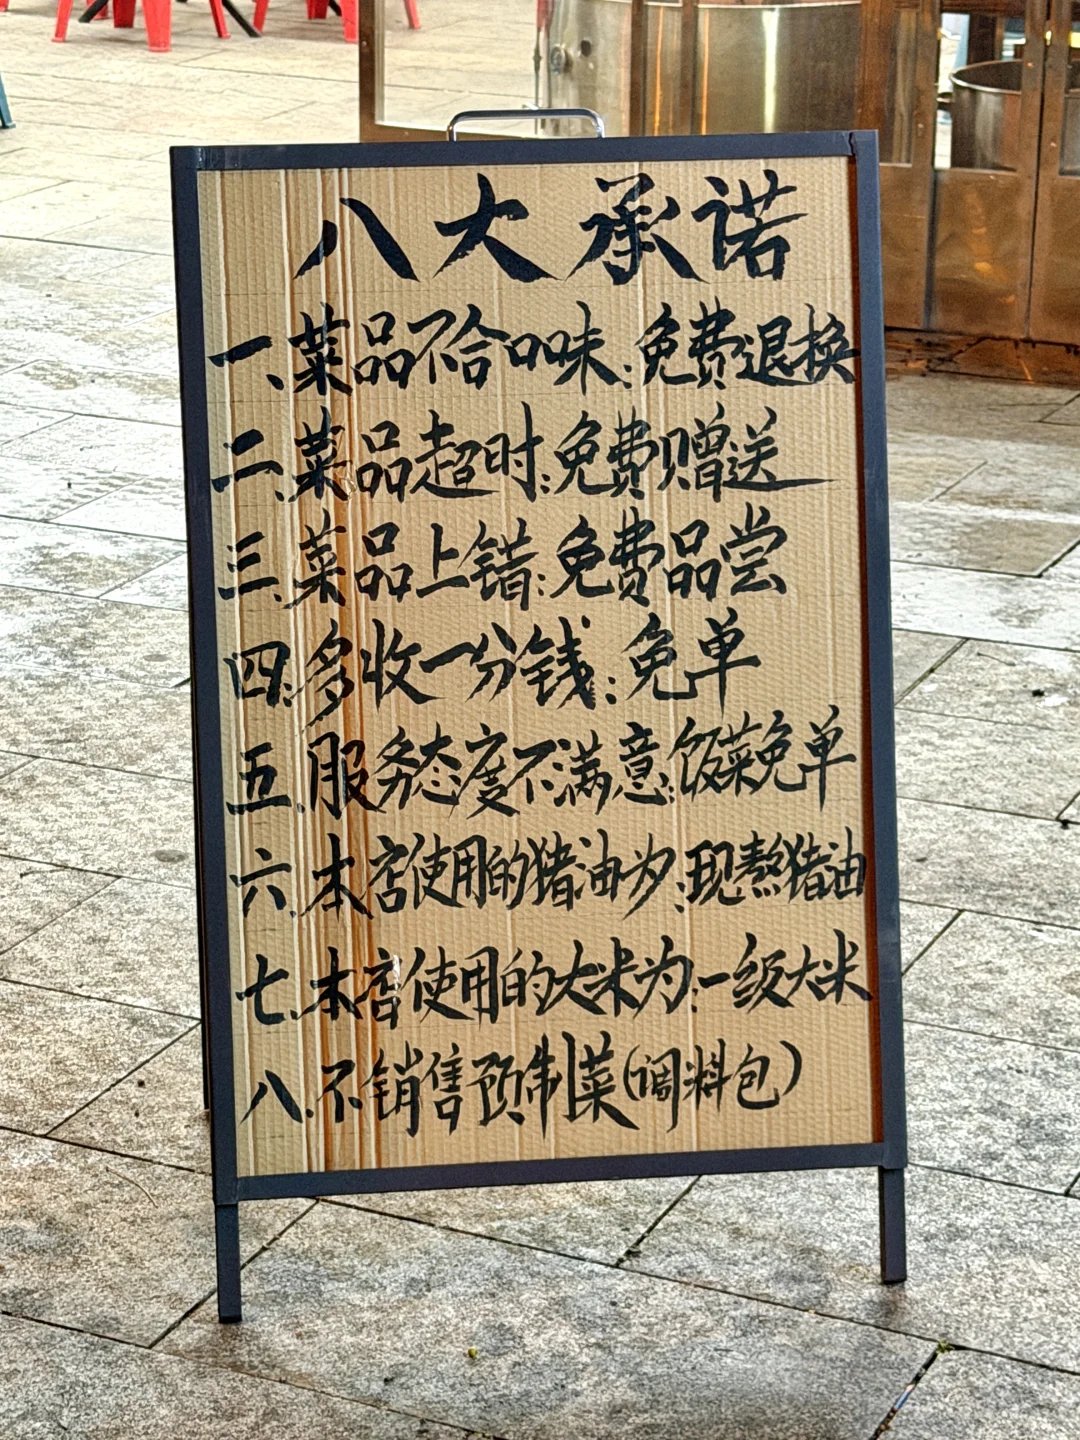 八大承诺
一、菜品不合口味:免费退换
二、菜品超时:免费赠送
三、菜品上错:免费品尝
四:多收一分钱:免单
五、服务态度不满意:饭菜免单
六、本店使用的猪油为:现熬猪油
七、本店使用的大米为:一级大米
八、不销售预制菜(调料包)